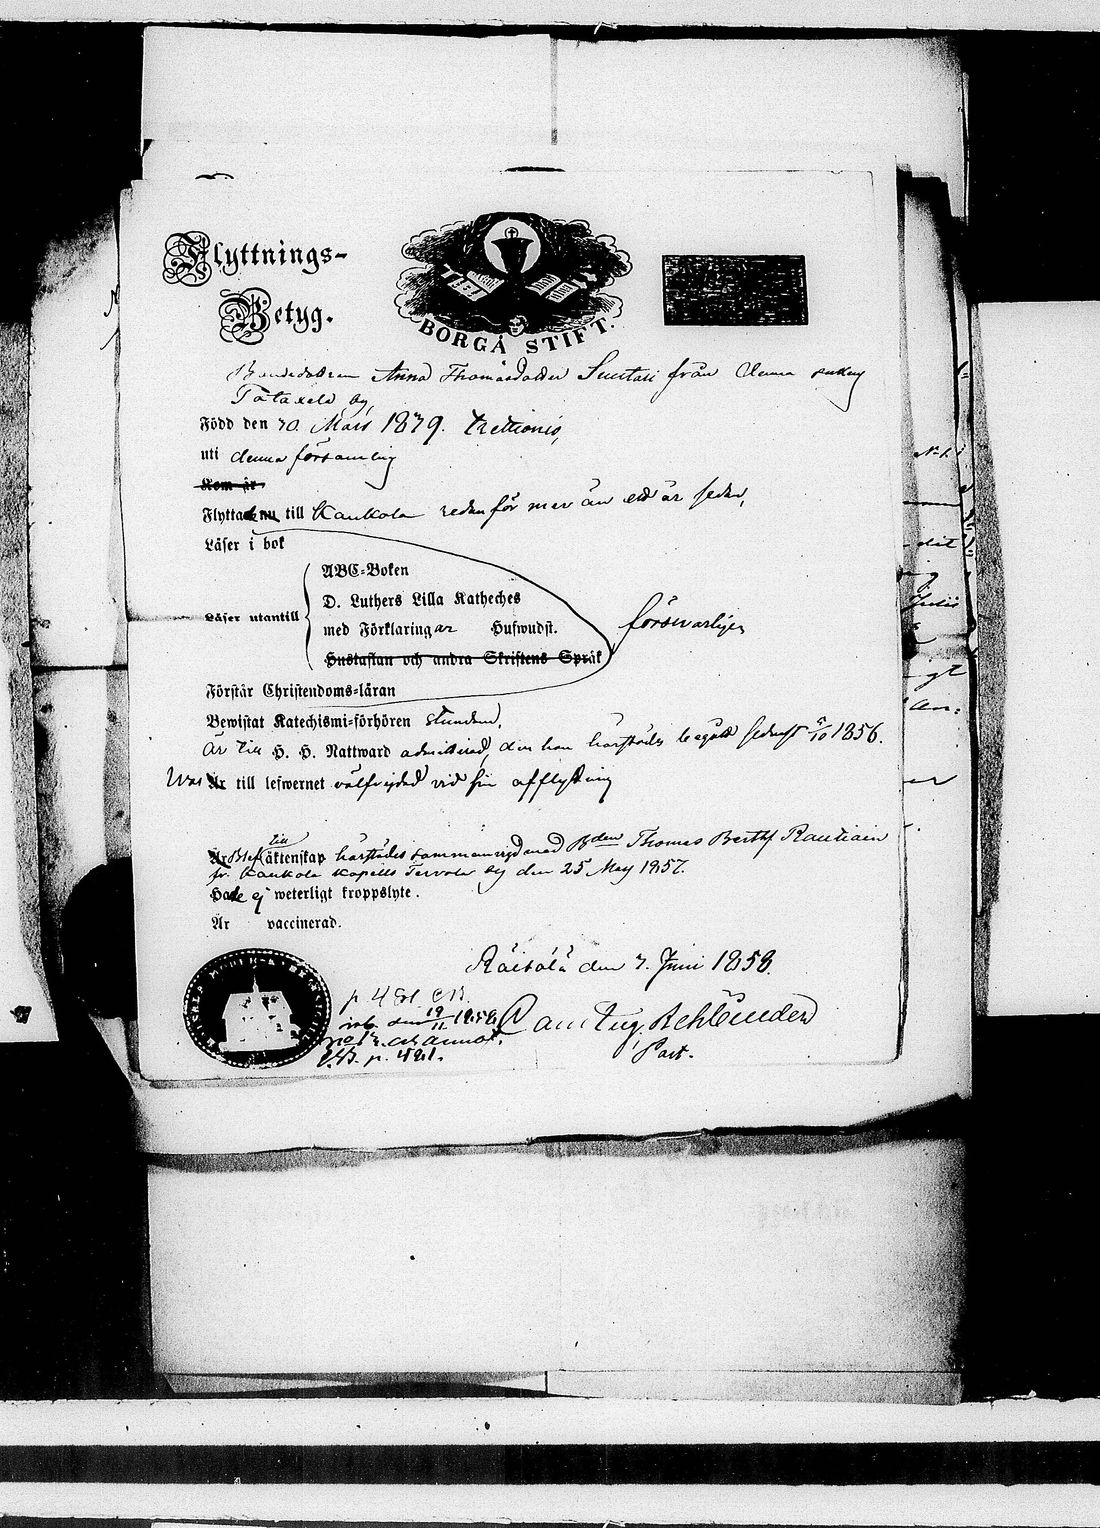 Flyttnings-
Betyg.
BORGÅ STIFT.
Bondedottren Anna Thomasdotter Suutari från denna socken
by,
Född den 30 Mars 1839. trettionio,
uti denna församling
Kom år
Flyttade nu till Kaukola redan för mer än ett år sedan,
Läser i bok
Läser utantill
ABC-Boken
D. Luthers Lilla Katheches
med Förklaringar Hufwudst.
Hustaflan och andra Skriftens Språk
försvarligen
Förstår Christendoms-läran
Bewistat Katechismi-förhören stundom,
Är till H. H. Nattward admitterad, den hon härstädes begått sednast 5/10 1856.
War Är till lefwernet välfrejdad vid sin afflyttning
Är till äktenskap härstädes sammanvigd med Bden Thomas Berthf Rautiain
fr. Kaukola kapells Tervola by den 25 May 1857.
Hade ej weterligt kroppslyte.
Är vaccinerad.
Räisälä den 7. Juni 1858.
p 481 CB.
inb. den 19/11 1858
annot.
CB. p. 481.
Past.